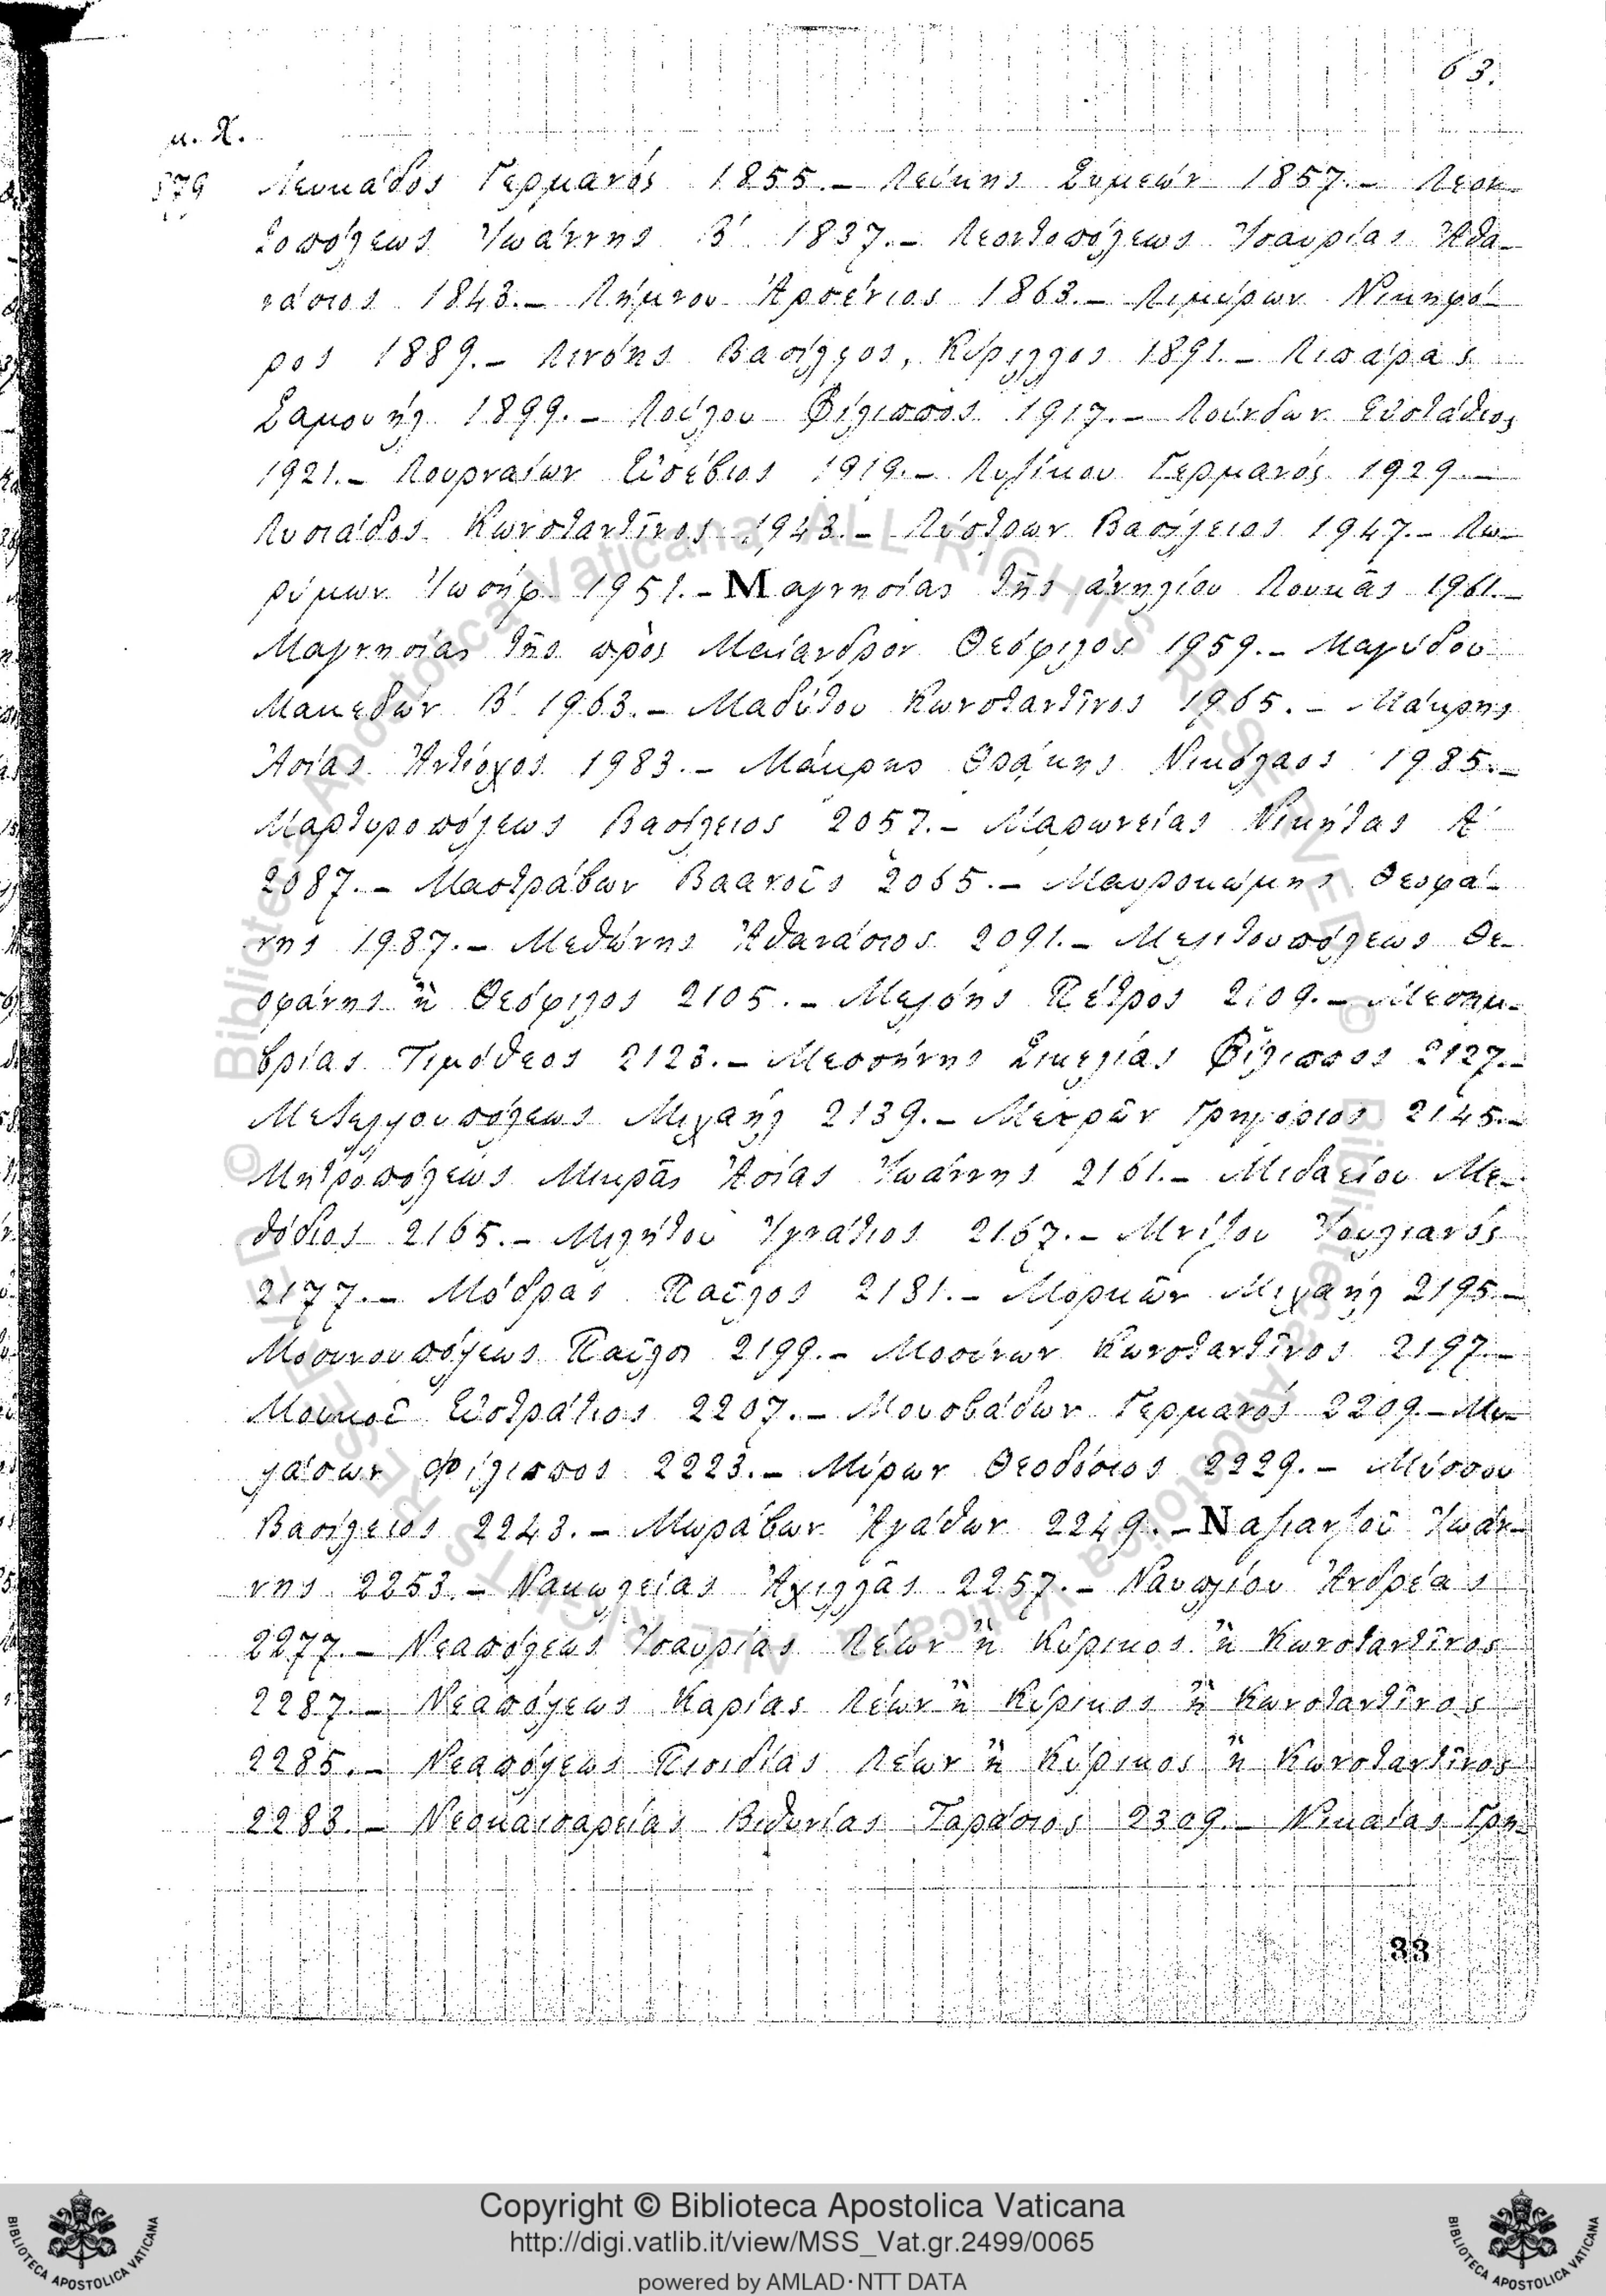 63.
μ. Χ.
879 Λευκάδος Γερμανός 1855.– Λεύκης Συμεών 1857.– Λεον-
τοπόλεως Ἰωάννης Β΄ 1837.– Λεοντοπόλεως Ἰσαυρίας Ἀθα-
νάσιος 1843.– Λήμνου Ἀρσένιος 1863.– Λιμύρων Νικηφό-
ρος 1889.– Λινόης Βασίλειος, Κύριλλος 1891.– Λιπάρας
Σαμουήλ 1899.– Λούλου Φίλιππος 1917.– Λούνδων Εὐστάθιος
1921.– Λουρναίων Εὐσέβιος 1919.– Λυζίκου Γερμανός 1929.–
Λυσιάδος Κωνσταντῖνος 1943.– Λύστρων Βασίλειος 1947.– Λω-
ρύμων Ἰωσήφ 1951.– Μαγνησίας τῆς ἀνηλίου Λουκᾶς 1961.–
Μαγνησίας τῆς πρὸς Μαίανδρον Θεόφιλος 1959.– Μαγύδου
Μακεδών Β΄ 1963.– Μαδύτου Κωνσταντῖνος 1965.– Μάκρης
Ἀσίας Ἀντίοχος 1983.– Μάκρης Θράκης Νικόλαος 1985.–
Μαρτυροπόλεως Βασίλειος 2057.– Μαρωνείας Νικήτας Α΄
2087.– Μαστράβων Βαανοῦς 2065.– Μαυροκώμης Θεοφά-
νης 1987.– Μεθώνης Ἀθανάσιος 2091.– Μελιτουπόλεως Θε-
οφάνης ἢ Θεόφιλος 2105.– Μελόης Πέτρος 2109.– Μεσημ-
βρίας Τιμόθεος 2123.– Μεσσήνης Σικελίας Φίλιππος 2127.–
Μετελλουπόλεως Μιχαήλ 2139.– Μετρῶν Γρηγόριος 2145.–
Μητροπόλεως Μικρᾶς Ἀσίας Ἰωάννης 2161.– Μιδαείου Με-
θόδιος 2165.– Μιλήτου Ἰγνάτιος 2167.– Μνίζου Ἰουλιανός
2177.– Μόδρας Παῦλος 2181.– Μορκῶν Μιχαήλ 2195.–
Μοσυνουπόλεως Παῦλος 2199.– Μοσύνων Κωνσταντῖνος 2197.–
Μουκοῦ Εὐστράτιος 2207.– Μουσβάδων Γερμανός 2209.– Μυ-
λάσων Φίλιππος 2223.– Μύρων Θεοδόσιος 2229.– Μύσσου
Βασίλειος 2243.– Μωράβων Ἀγάθων 2249.– Ναζιανζοῦ Ἰωάν-
νης 2253.– Νακωλείας Ἀχιλλᾶς 2257.– Ναυπλίου Ἀνδρέας
2277.– Νεαπόλεως Ἰσαυρίας Λέων ἢ Κύρικος ἢ Κωνσταντῖνος
2287.– Νεαπόλεως Καρίας Λέων ἢ Κύρικος ἢ Κωνσταντῖνος
2285.– Νεαπόλεως Πισιδίας Λέων ἢ Κύρικος ἢ Κωνσταντῖνος
2283.– Νεοκαισαρείας Βιθυνίας Ταράσιος 2309.– Νικαίας Γρη-
33
© Biblioteca Apostolica Vaticana ALL RIGHTS RESERVED
Copyright © Biblioteca Apostolica Vaticana
http://digi.vatlib.it/view/MSS_Vat.gr.2499/0065
powered by AMLAD·NTT DATA
BIBLIOTECA APOSTOLICA VATICANA
BIBLIOTECA APOSTOLICA VATICANA